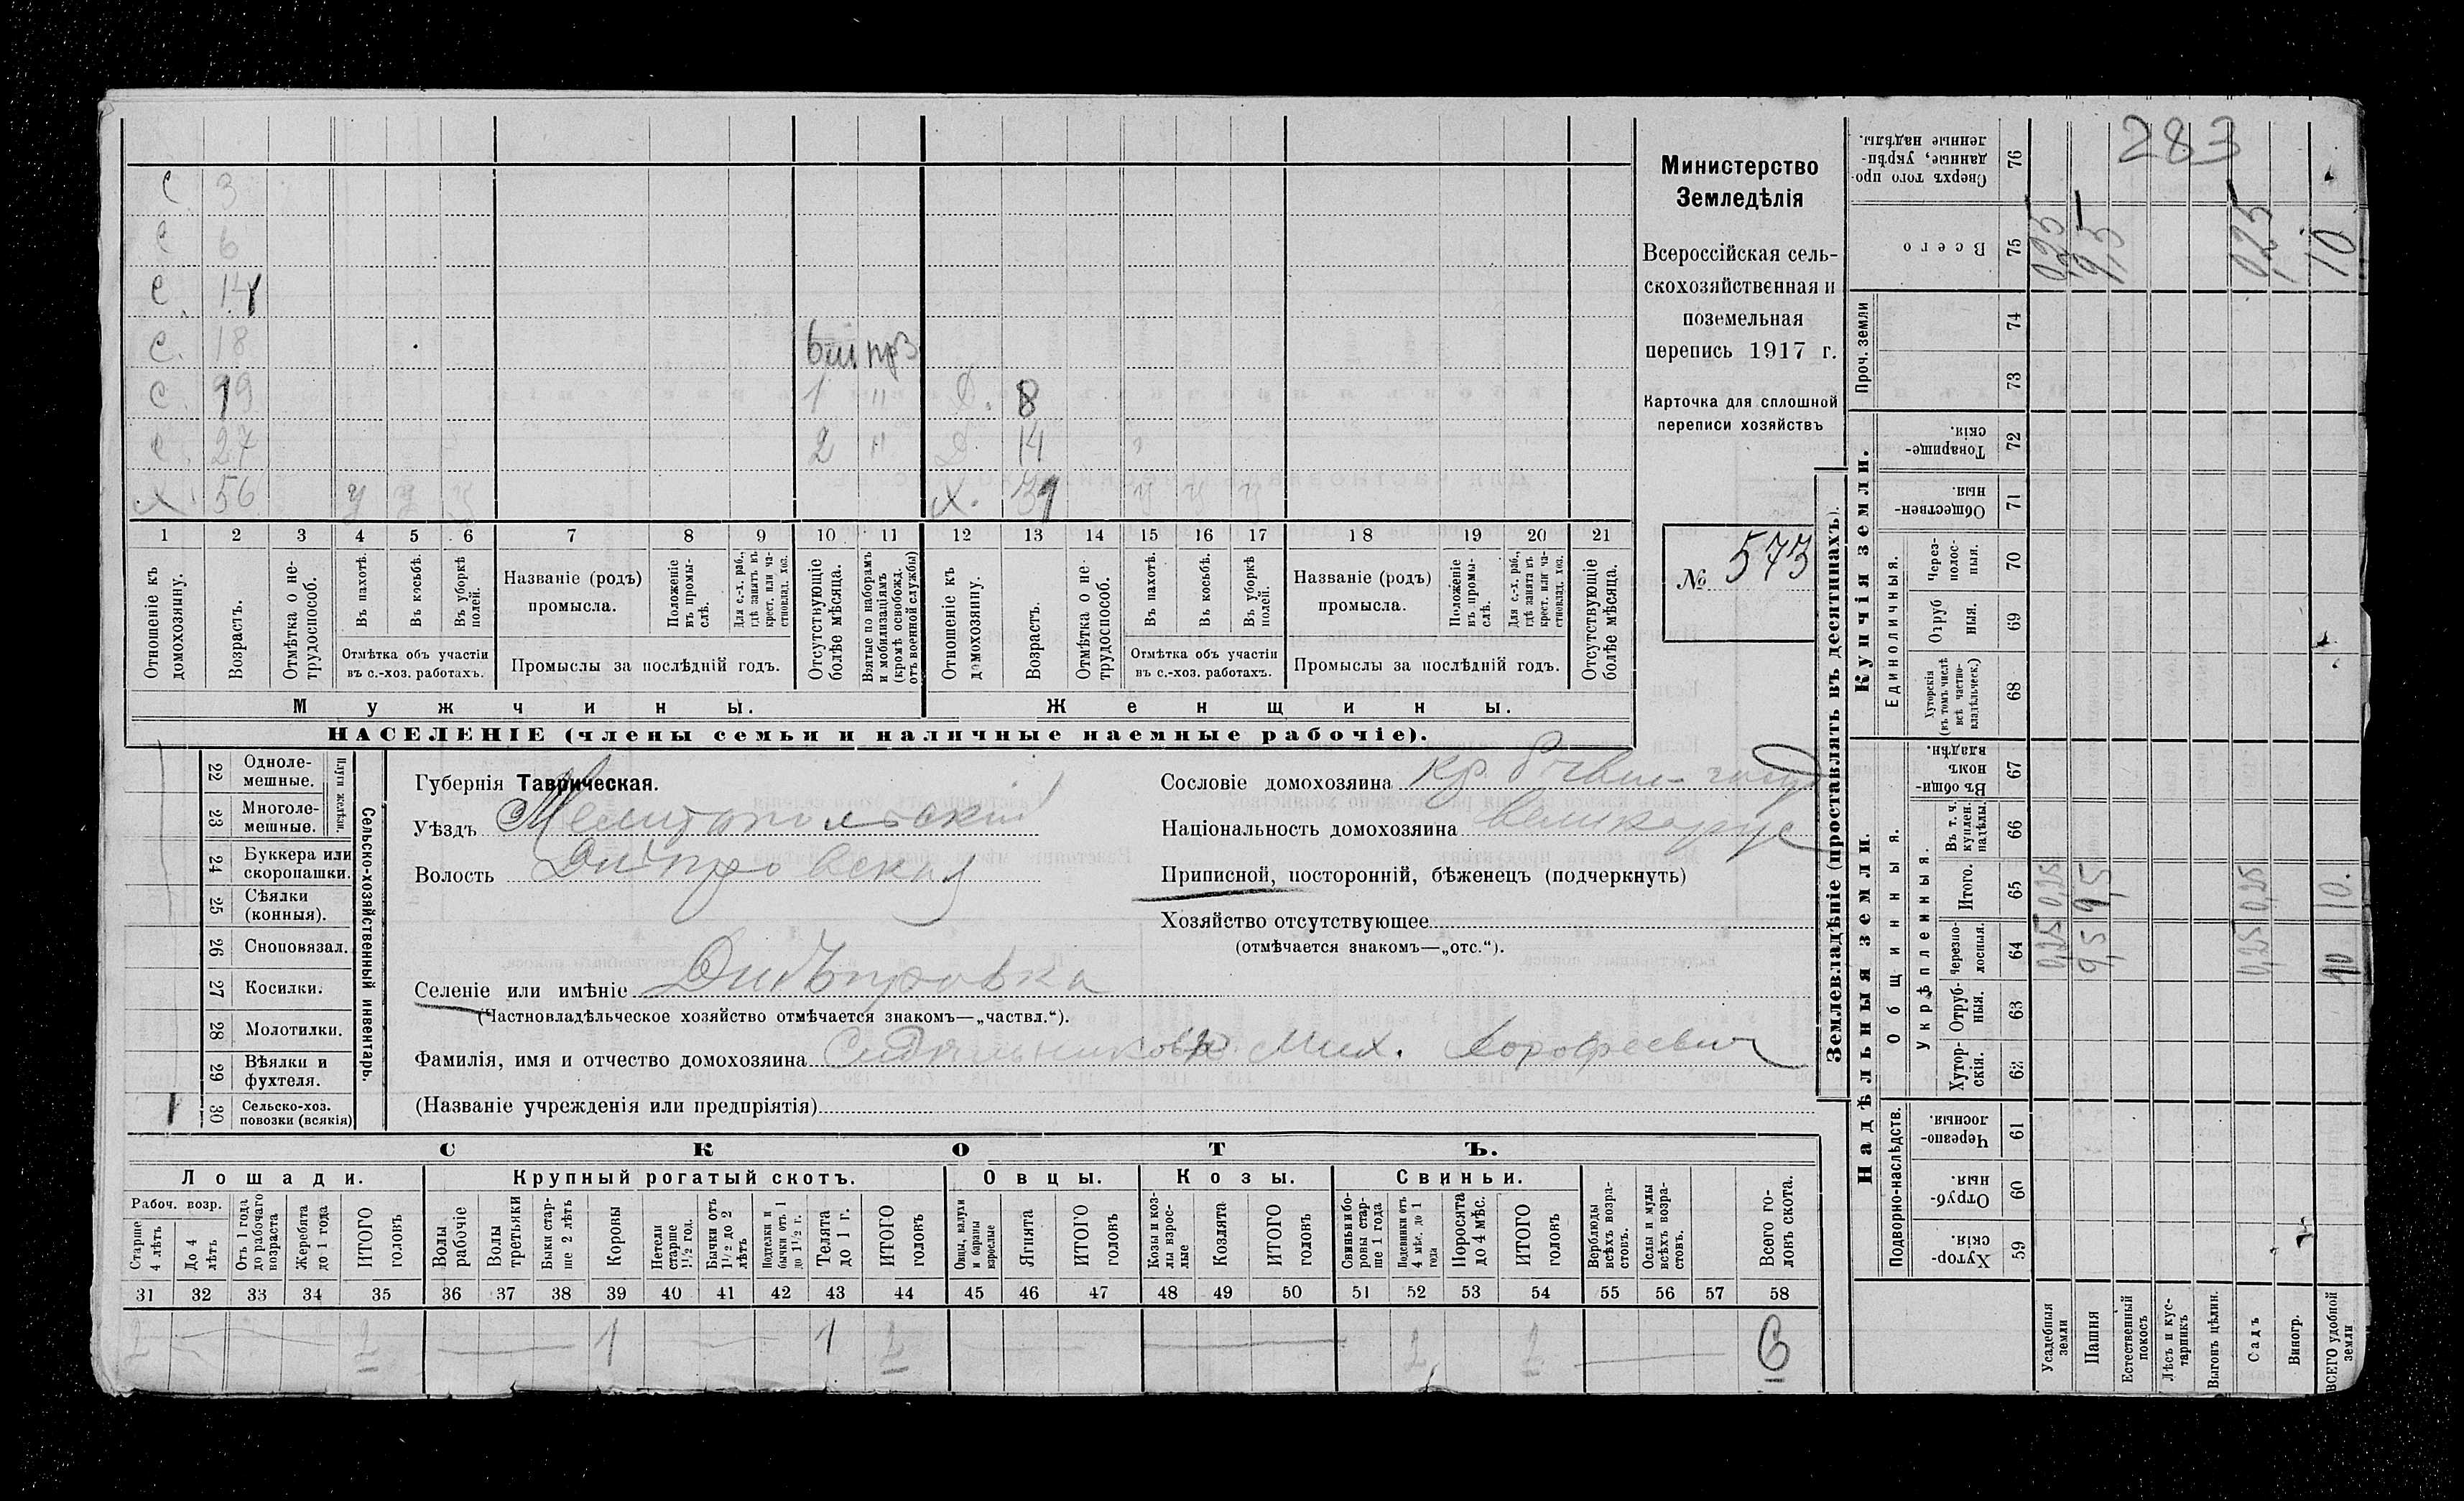 С 3
С 6
С 14
С. 18
С. 19 1 " Д. 8
С. 27 2 " Д. 14
Х. 56 у у у Х. 31 у у у
1 2 3 4 5 6 7 8 9 10 11 12 13 14 15 16 17 18 19 20 21
Отношеніе къ домохозяину.
Возрастъ.
Отмѣтка о не-трудоспособ.
Въ пахотѣ.
Въ косьбѣ.
Въ уборкѣ полей.
Отмѣтка объ участіи
въ с.-хоз. работахъ.
Названіе (родъ)
промысла.
Положеніе въ промы-слѣ.
Для с.-х. раб., гдѣ занятъ въ крест. или ча-стновлад. хоз.
Промыслы за послѣдній годъ.
Отсутствующіе болѣе мѣсяца.
Взятые по наборамъ и мобилизаціямъ (кромѣ освобожд. отъ военной службы)
Отношеніе къ домохозяину.
Возрастъ.
Отмѣтка о не-трудоспособ.
Въ пахотѣ.
Въ косьбѣ.
Въ уборкѣ полей.
Отмѣтка объ участіи
въ с.-хоз. работахъ.
Названіе (родъ)
промысла.
Положеніе въ промы-слѣ.
Для с.-х. раб., гдѣ занята въ крест. или ча-стновлад. хоз.
Промыслы за послѣдній годъ.
Отсутствующіе болѣе мѣсяца.
Мужчины. Женщины.
НАСЕЛЕНІЕ (члены семьи и наличные наемные рабочіе).
Министерство
Земледѣлія
Всероссійская сель-
скохозяйственная и
поземельная
перепись 1917 г.
Карточка для сплошной
переписи хозяйствъ
№ 573
22 Одноле-мешные.
23 Многоле-мешные.
Плуги желѣзн.
24 Буккера или скоропашки.
25 Сѣялки (конныя).
26 Сноповязал.
27 Косилки.
28 Молотилки.
29 Вѣялки и фухтеля.
1 30 Сельско-хоз. повозки (всякія)
Сельско-хозяйственный инвентарь.
Губернія Таврическая.
Уѣздъ Мелитопольскій
Волость Днѣпровская
Селеніе или имѣніе Днѣпровка
(Частновладѣльческое хозяйство отмѣчается знакомъ—„частвл.“).
Фамилія, имя и отчество домохозяина Сидѣльниковъ Мих. Дорофеевич
(Названіе учрежденія или предпріятія)
Сословіе домохозяина кр.
Національность домохозяина великорус
Приписной, посторонній, бѣженецъ (подчеркнуть)
Хозяйство отсутствующее
(отмѣчается знакомъ—„отс.“).
СКОТЪ.
Лошади. Крупный рогатый скотъ. Овцы. Козы. Свиньи.
Рабоч. возр.
Старше 4 лѣтъ
До 4 лѣтъ
Отъ 1 года до рабочаго возраста
Жеребята до 1 года
ИТОГО головъ
Волы рабочіе
Волы третьяки
Быки стар-ше 2 лѣтъ
Коровы
Нетели старше 1½ год.
Бычки отъ 1½ до 2 лѣтъ
Подтелки и бычки отъ 1 до 1½ г.
Телята до 1 г.
ИТОГО головъ
Овцы, валухи и бараны взрослые
Ягнята
ИТОГО головъ
Козы и коз-лы взрос-лые
Козлята
ИТОГО головъ
Свиньи и бо-ровы стар-ше 1 года
Подсвинки отъ 4 мѣс. до 1 года
Поросята до 4 мѣс.
ИТОГО головъ
Верблюды всѣхъ возра-стовъ.
Ослы и мулы всѣхъ возра-стовъ.
Всего го-ловъ скота.
31 32 33 34 35 36 37 38 39 40 41 42 43 44 45 46 47 48 49 50 51 52 53 54 55 56 57 58
2 2 1 1 2 2 2 6
283
Землевладѣніе (проставлять въ десятинахъ).
Надѣльныя земли. Купчія земли.
Подворно-наслѣдств.
Общинныя.
Укрѣпленныя.
Единоличныя.
Проч. земли
59 Хутор-скія.
60 Отруб-ныя.
61 Черезпо-лосныя.
62 Хутор-скія.
63 Отруб-ныя.
64 Черезпо-лосныя.
65 Итого.
66 Въ т. ч. куплен. надѣлы.
67 Въ общи-номъ владѣн.
68 Хуторскія (въ томъ числѣ всѣ частно-владѣльческ.)
69 Отруб ныя.
70 Через-полос-ныя.
71 Обществен-ныя.
72 Товарище-скія.
73
74
75 Всего
76 Сверхъ того про-данные, укрѣп-ленные надѣлы.
Усадебныя земли 0,25 0,25 0,25
Пашня 9,5 9,5 9,5
Естественный покосъ
Лѣсъ и кус-тарникъ
Выгонъ цѣлин.
Садъ 0,25 0,25 0,25
Виногр.
ВСЕГО удобной земли 10 10. 10